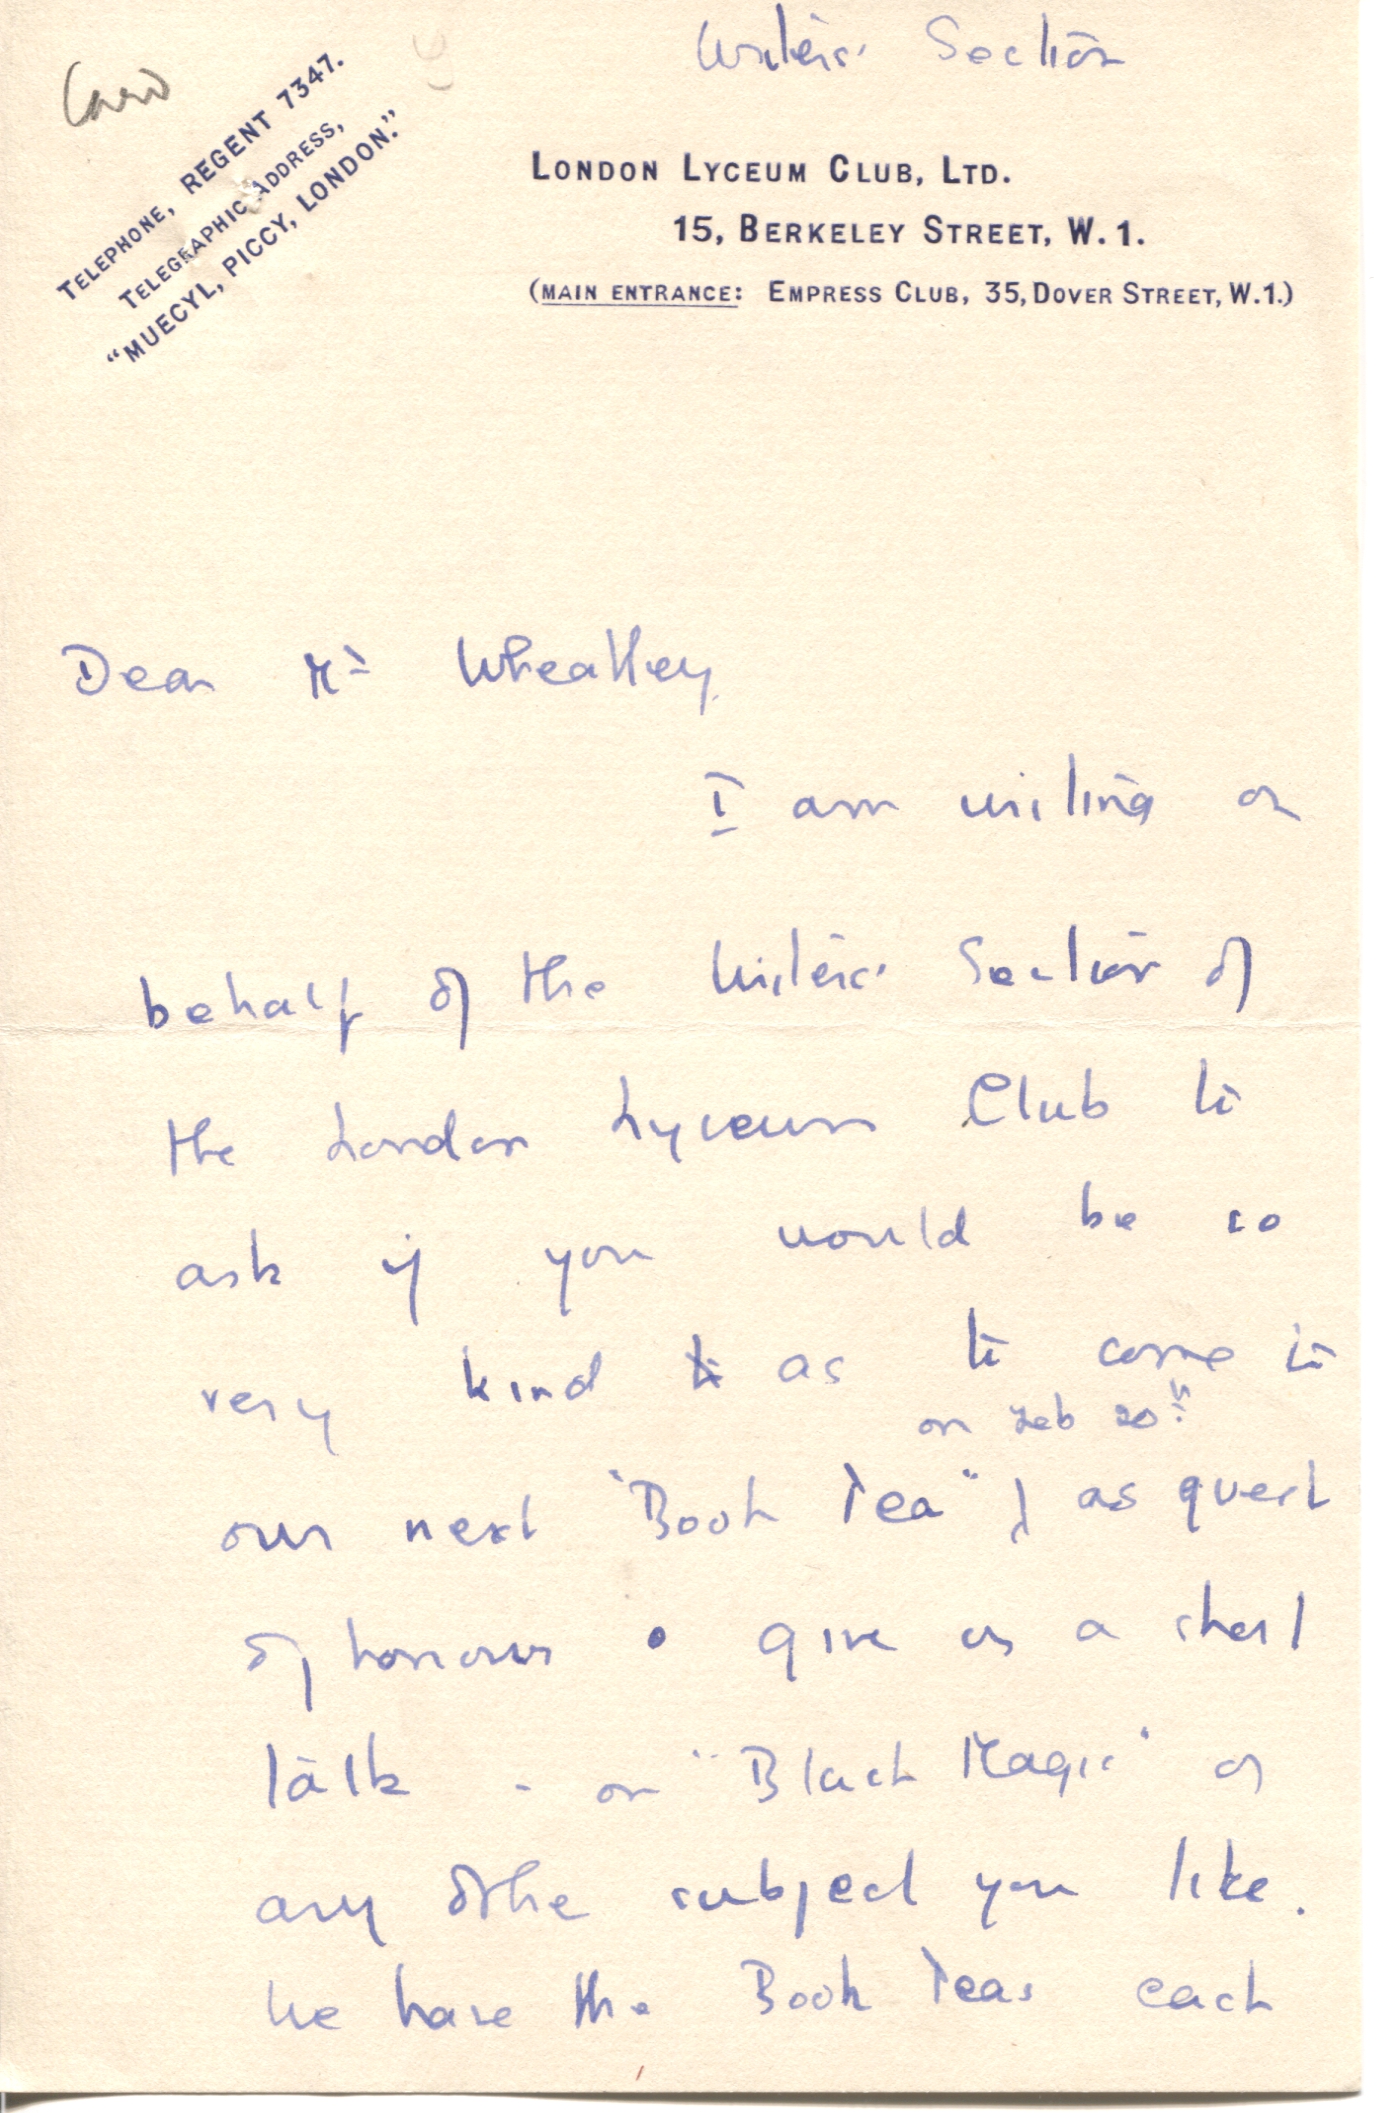 Writers' Section
TELEPHONE, REGENT 7347.
TELEGRAPHIC ADDRESS,
"MUECYL, PICCY, LONDON."
LONDON LYCEUM CLUB, LTD.
15, BERKELEY STREET, W. 1.
(MAIN ENTRANCE: EMPRESS CLUB, 35, DOVER STREET, W.1.)
Dear Mr Wheatley
I am writing on
behalf of the Writers' Section of
the London Lyceum Club to
ask if you would be so
very kind as to come to
on Feb 20th
our next "Book Tea" & as guest
of honour give us a short
talk - on "Black Magic" or
any other subject you like.
We have the Book Teas each